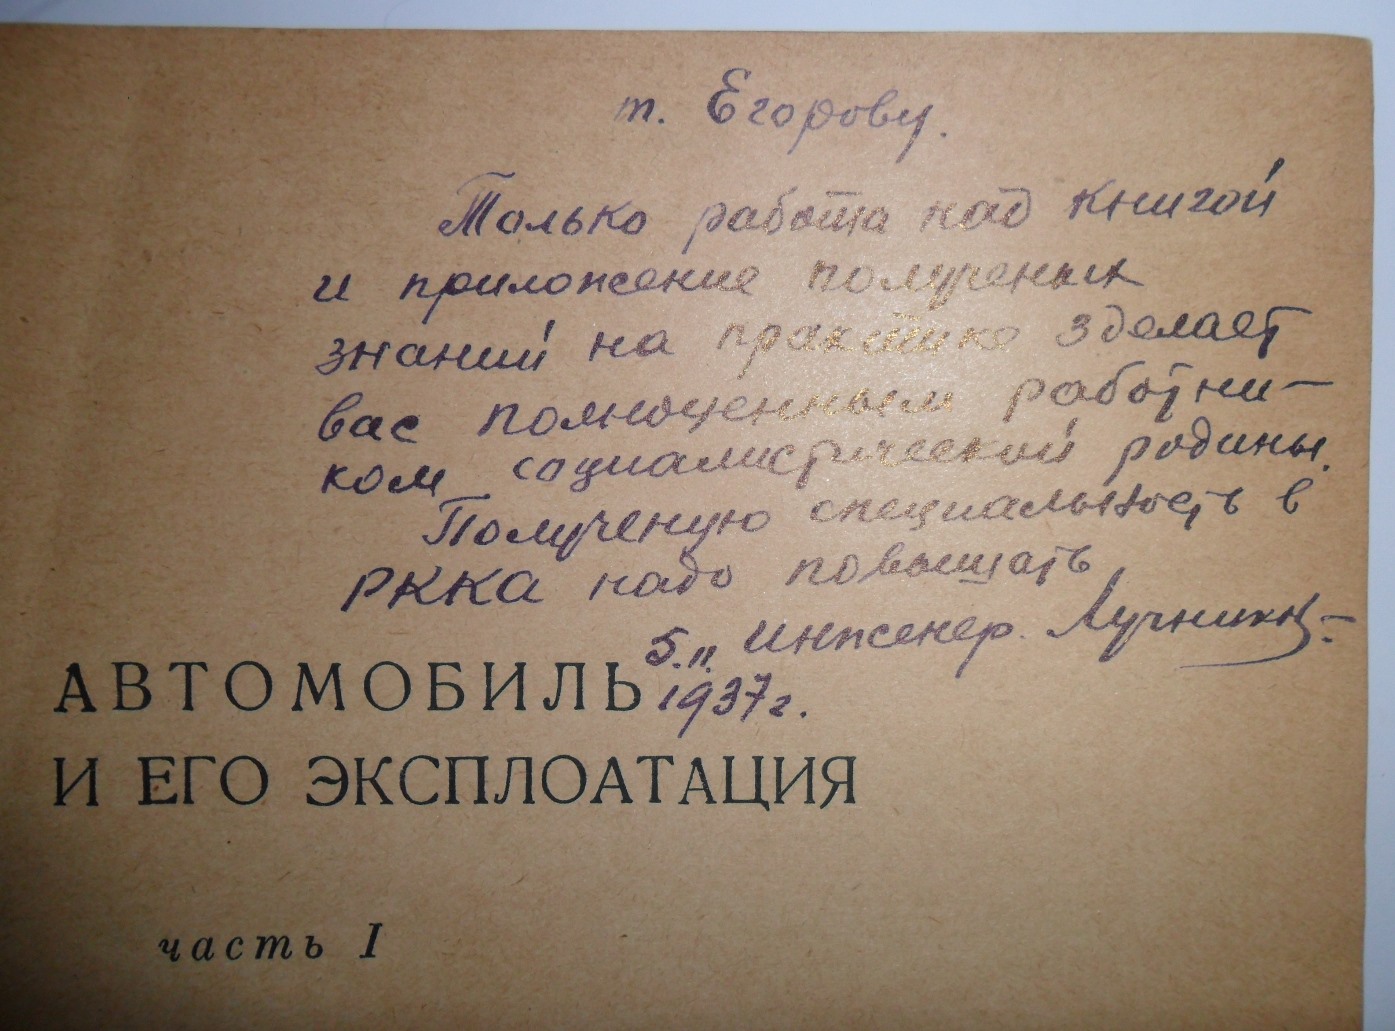 т. Егорову.
Только работа над книгой
и приложение полученых
знаний на практике зделает
вас полноценным работни-
ком социалистической родины.
Полученую специальность в
РККА надо повышать
5.II. Инженер.
1937г.
АВТОМОБИЛЬ
И ЕГО ЭКСПЛОАТАЦИЯ
часть I